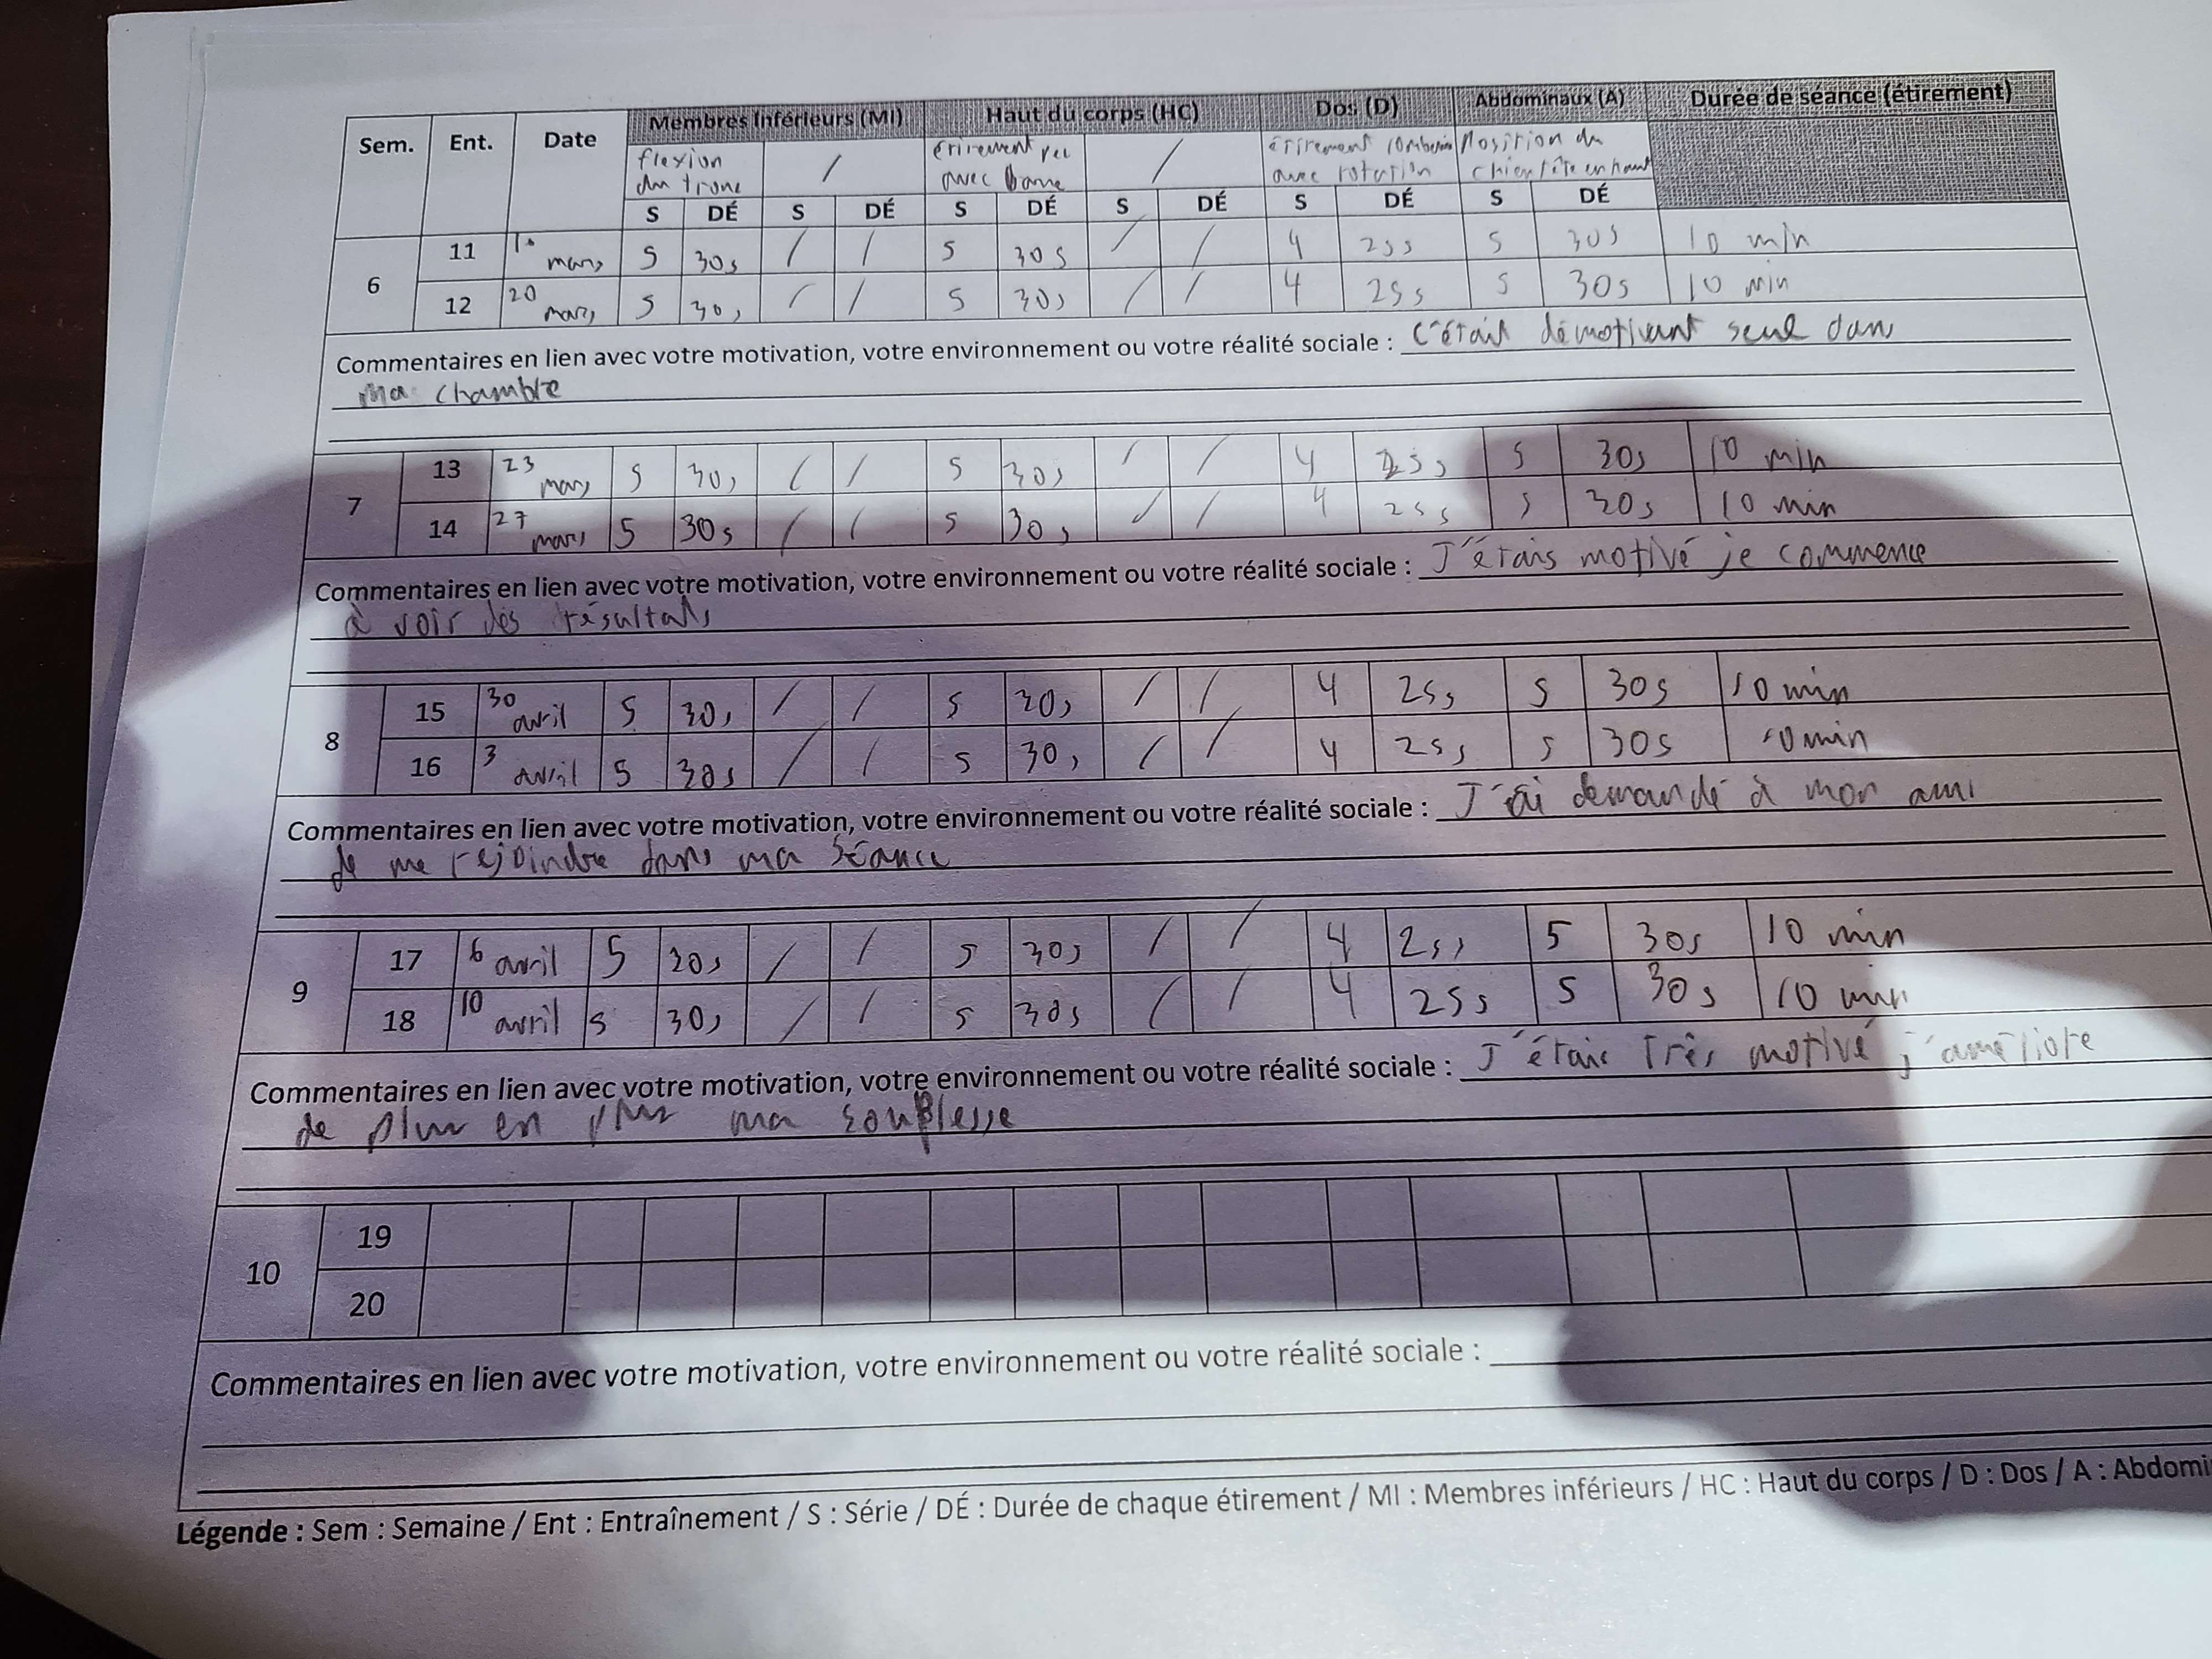 Sem. Ent. Date Membres Inférieurs (MI) Haut du corps (HC) Dos (D) Abdominaux (A) Durée de séance (étirement)
flexion du tronc / étirement avec barre / étirement avec rotation Position du chien tête en haut
S DÉ S DÉ S DÉ S DÉ S DÉ S DÉ
6
11 mars 5 30s / / 5 30s / / 4 25s 5 30s 10 min
12 20 mars 5 30s / / 5 30s / / 4 25s 5 30s 10 min
Commentaires en lien avec votre motivation, votre environnement ou votre réalité sociale : C'était démotivant seul dans
ma chambre
7
13 23 mars 5 30s / / 5 30s / / 4 25s 5 30s 10 min
14 27 mars 5 30s / / 5 30s / / 4 25s 5 30s 10 min
Commentaires en lien avec votre motivation, votre environnement ou votre réalité sociale : J'étais motivé je commence
à voir des résultats
8
15 30 avril 5 30s / / 5 30s / / 4 25s 5 30s 10 min
16 3 avril 5 30s / / 5 30s / / 4 25s 5 30s 10 min
Commentaires en lien avec votre motivation, votre environnement ou votre réalité sociale : J'ai demandé à mon ami
de me rejoindre dans ma séance
9
17 6 avril 5 30s / / 5 30s / / 4 25s 5 30s 10 min
18 10 avril 5 30s / / 5 30s / / 4 25s 5 30s 10 min
Commentaires en lien avec votre motivation, votre environnement ou votre réalité sociale : J'étais très motivé j'améliore
de plus en plus ma souplesse
10
19
20
Commentaires en lien avec votre motivation, votre environnement ou votre réalité sociale :
Légende : Sem : Semaine / Ent : Entraînement / S : Série / DÉ : Durée de chaque étirement / MI : Membres inférieurs / HC : Haut du corps / D : Dos / A : Abdomi